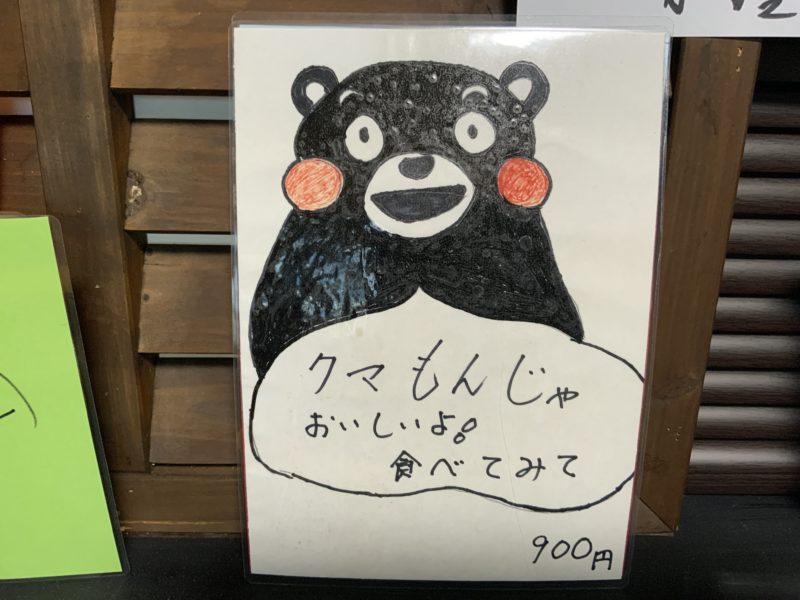 クマもんじゃ
おいしいよ!
食べてみて
900円